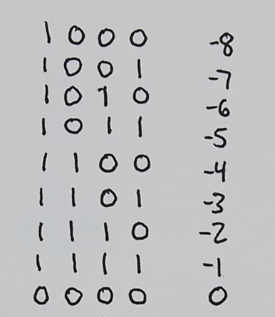 1 0 0 0 -8
1 0 0 1 -7
1 0 1 0 -6
1 0 1 1 -5
1 1 0 0 -4
1 1 0 1 -3
1 1 1 0 -2
1 1 1 1 -1
0 0 0 0 0